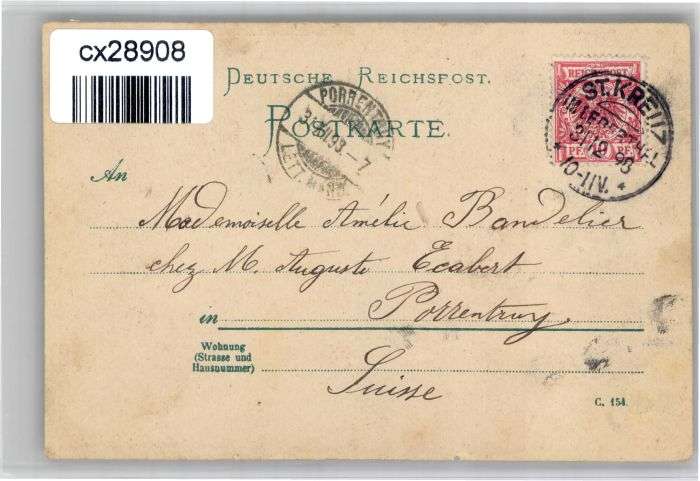 cx28908
DEUTSCHE REICHSPOST.
POSTKARTE.
PORRENTRUY
REICHSPOST
10 PF.
ST. KREUZ
31/12 98
10-11V.
An
Mademoiselle Amélie Bandelier
chez M. Auguste Ecabert
in Porrentruy.
Wohnung
(Strasse und
Hausnummer)
Suisse
C. 154.